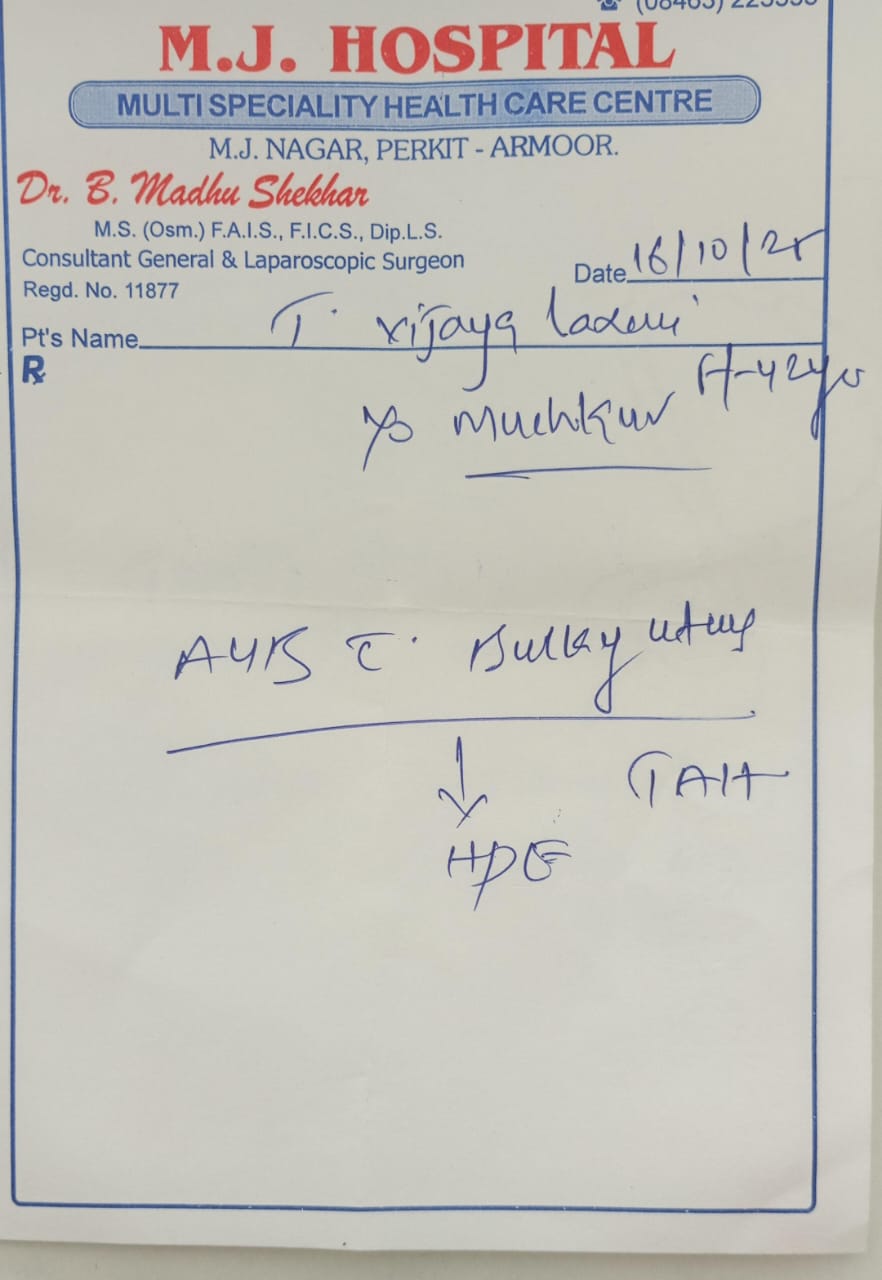 (08463) 223338
M.J. HOSPITAL
MULTI SPECIALITY HEALTH CARE CENTRE
M.J. NAGAR, PERKIT - ARMOOR.
Dr. B. Madhu Shekhar
M.S. (Osm.) F.A.I.S., F.I.C.S., Dip.L.S.
Consultant General & Laparoscopic Surgeon
Regd. No. 11877
Date 16/10/25
Pt's Name T. Vijaya Laxmi
Rx
F-42yrs
Muchkur
AUB c̄ Bulky uterus
↓
TAH
HPE